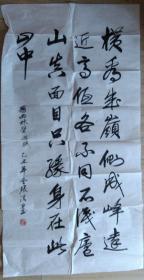 横看成嶺側成峰遠
近高低各不同不識廬
山真面目只緣身在此
山中
題西林壁 乙丑年